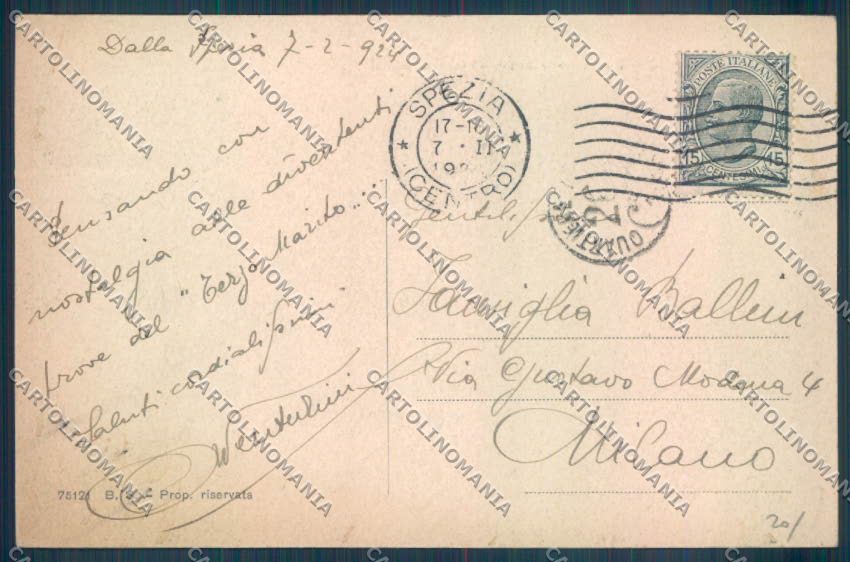 Dalla Spezia 7-2-924
Pensando con
nostalgia alle divertenti
prove del "Terzo Marito"...
Saluti cordialissimi
Venturini
75121 B. S. - Prop. riservata
SPEZIA
17-1
7 · II
19
(CENTRO)
POSTE ITALIANE
15 15
CENTESIMI
Gentilis
Famiglia Ballini
Via Gustavo Modena 4
Milano
20/
CARTOLINOMANIA